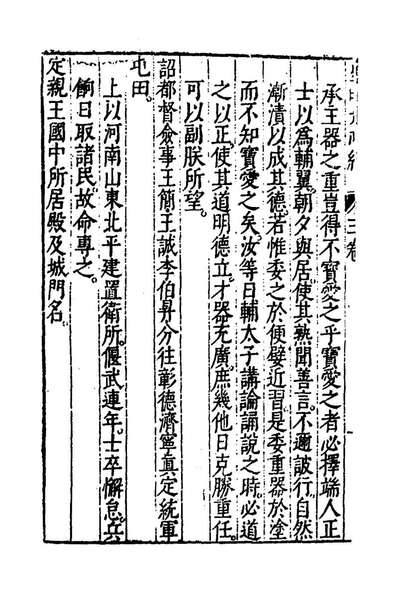 三卷
承主器之重豈得不寶愛之乎寶愛之者必擇端人正
士以爲輔翼朝夕與居使其熟聞善言不邇詖行自然
漸漬以成其德若惟委之於便嬖近習是委重器於塗
而不知寶愛之矣汝等日輔太子講論誦說之時必道
之以正使其道明德立才器充廣庶幾他日克勝重任
可以副朕所望
詔都督僉事王簡王誠李伯昇分往彰德濟寧眞定統軍
屯田
上以河南山東北平建置衛所偃武連年士卒懈怠兵
餉日取諸民故命專之
定親王國中所居殿及城門名